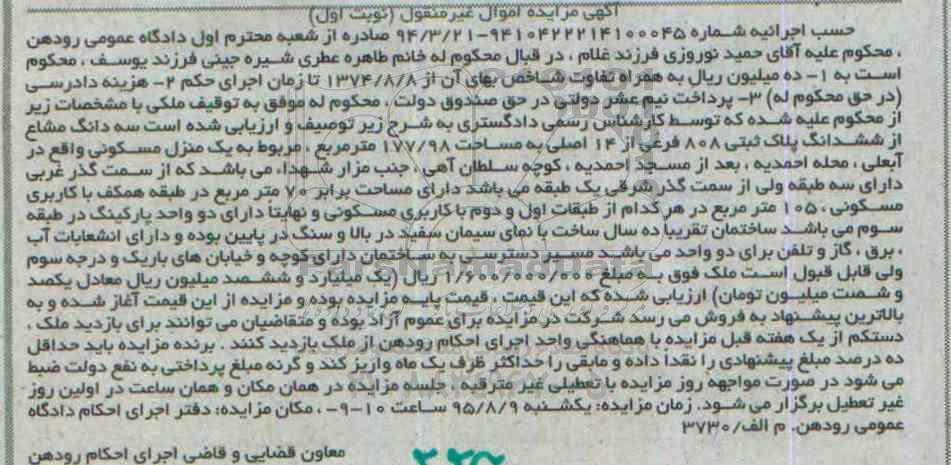 آگهی مزایده اموال غیرمنقول (نوبت اول)
حسب اجرائیه شماره ۹۴۱۰۴۲۲۲۱۴۱۰۰۰۴۵-۹۴/۳/۲۱ صادره از شعبه محترم اول دادگاه عمومی رودهن
، محکوم علیه آقای حمید نوروزی فرزند غلام ، در قبال محکوم له خانم طاهره عطری شیره جینی فرزند یوسف ، محکوم
است به ۱- ده میلیون ریال به همراه تفاوت شاخص بهای آن از ۱۳۷۴/۸/۸ تا زمان اجرای حکم ۲- هزینه دادرسی
(در حق محکوم له) ۳- پرداخت نیم عشر دولتی در حق صندوق دولت ، محکوم له موفق به توقیف ملکی با مشخصات زیر
از محکوم علیه شده که توسط کارشناس رسمی دادگستری به شرح زیر توصیف و ارزیابی شده است سه دانگ مشاع
از ششدانگ پلاک ثبتی ۸۰۸ فرعی از ۱۴ اصلی به مساحت ۱۷۷/۹۸ مترمربع ، مربوط به یک منزل مسکونی واقع در
آبعلی ، محله احمدیه ، بعد از مسجد احمدیه ، کوچه سلطان آهی ، جنب مزار شهداء می باشد که از سمت گذر غربی
دارای سه طبقه ولی از سمت گذر شرقی یک طبقه می باشد دارای مساحت برابر ۷۰ متر مربع در طبقه همکف با کاربری
مسکونی ، ۱۰۵ متر مربع در هر کدام از طبقات اول و دوم با کاربری مسکونی و نهایتاً دارای دو واحد پارکینگ در طبقه
سوم می باشد ساختمان تقریباً ده سال ساخت با نمای سیمان سفید در بالا و سنگ در پایین بوده و دارای انشعابات آب
، برق ، گاز و تلفن برای دو واحد می باشد مسیر دسترسی به ساختمان دارای کوچه و خیابان های باریک و درجه سوم
ولی قابل قبول است ملک فوق به مبلغ ۱/۶۰۰/۰۰۰/۰۰۰ ریال (یک میلیارد و ششصد میلیون ریال معادل یکصد
و شصت میلیون تومان) ارزیابی شده که این قیمت ، قیمت پایه مزایده بوده و مزایده از این قیمت آغاز شده و به
بالاترین پیشنهاد به فروش می رسد شرکت در مزایده برای عموم آزاد بوده و متقاضیان می توانند برای بازدید ملک ،
دستکم از یک هفته قبل مزایده با هماهنگی واحد اجرای احکام رودهن از ملک بازدید کنند . برنده مزایده باید حداقل
ده درصد مبلغ پیشنهادی را نقداً داده و مابقی را حداکثر ظرف یک ماه واریز کند و گرنه مبلغ پرداختی به نفع دولت ضبط
می شود در صورت مواجهه روز مزایده با تعطیلی غیر مترقبه ، جلسه مزایده در همان مکان و همان ساعت در اولین روز
غیر تعطیل برگزار می شود. زمان مزایده: یکشنبه ۹۵/۸/۹ ساعت ۱۰-۹-، مکان مزایده: دفتر اجرای احکام دادگاه
عمومی رودهن. م الف/۳۷۳۰
معاون قضایی و قاضی اجرای احکام رودهن